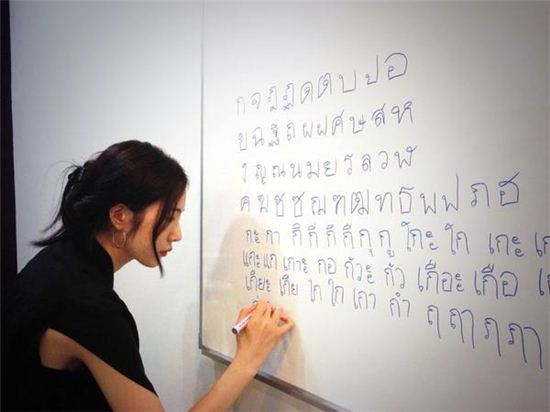 ก จ ฎ ฏ ด ต บ ป อ
ข ฉ ฐ ถ ผ ฝ ศ ษ ส ห
ง ญ ณ น ม ย ร ล ว ฬ
ค ฆ ช ซ ฌ ฑ ฒ ท ธ พ ฟ ภ ฮ
กะ กา กิ กี กึ กื กุ กู โกะ โก เกะ เก
แกะ แก เกาะ กอ กัวะ กัว เกือะ เกือ
เกียะ เกีย ไก ใก เกา กำ ฤ ฤๅ ฦ ฦๅ